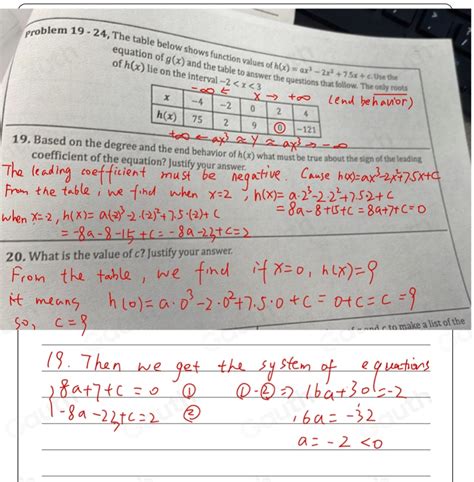 Problem 19 - 24, The table below shows function values of h(x) = ax³ − 2x² + 7.5x + c. Use the
equation of g(x) and the table to answer the questions that follow. The only roots
of h(x) lie on the interval −2 < x < 3
-∞ ← x → +∞ (end behavior)
x -4 -2 0 2 4
h(x) 75 2 9 0 -121
+∞ ← ax³ ≈ y ≈ ax³ → -∞
19. Based on the degree and the end behavior of h(x) what must be true about the sign of the leading
coefficient of the equation? Justify your answer.
The leading coefficient must be negative. Cause h(x)=ax³-2x²+7.5x+c
From the table, we find when x=2, h(x)=a·2³-2·2²+7.5·2+c
= 8a-8+15+c=8a+7+c=0
when x=-2, h(x)= a(-2)³-2·(-2)²+7.5·(-2)+c
= -8a-8-15+c=-8a-23+c=2
20. What is the value of c? Justify your answer.
From the table, we find if x=0, h(x)=9
it means h(0)=a·0³-2·0²+7.5·0+c=0+c=c=9
so, c=9
and c to make a list of the
19. Then we get the system of equations
8a+7+c=0 ① ①-②=> 16a+30=-2
-8a-23+c=2 ② 16a=-32
a=-2<0